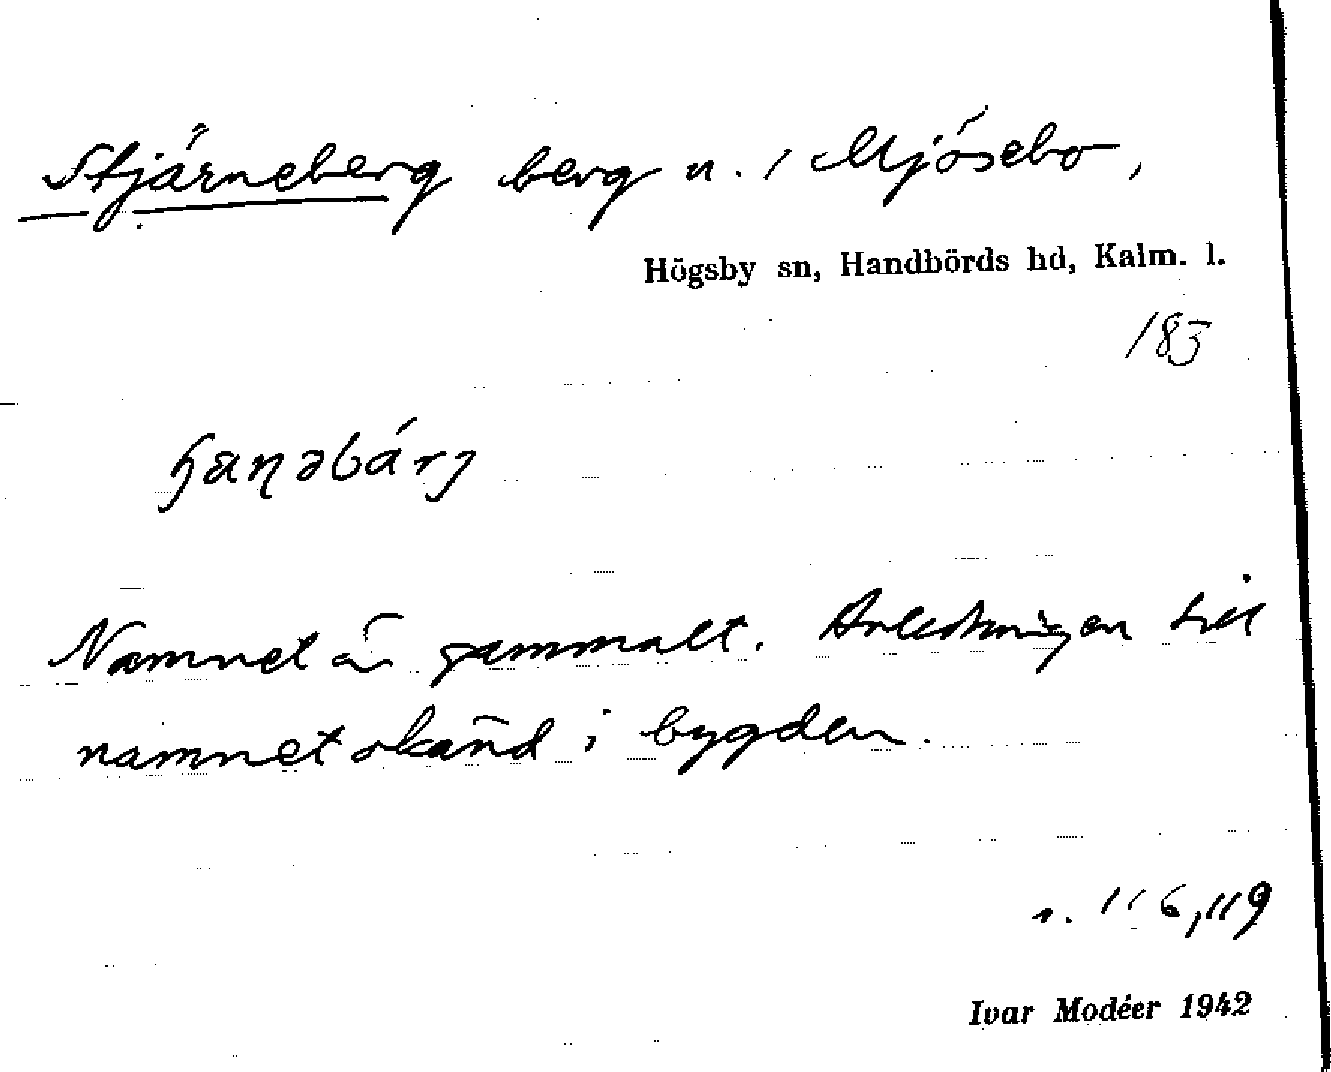 Stjärneberg berg n. i Mjösebo,
Högsby sn, Handbörds hd, Kalm. l.
183
Namnet är gammalt. Anledningen till
namnet okänd i bygden.
s. 116, 119
Ivar Modéer 1942